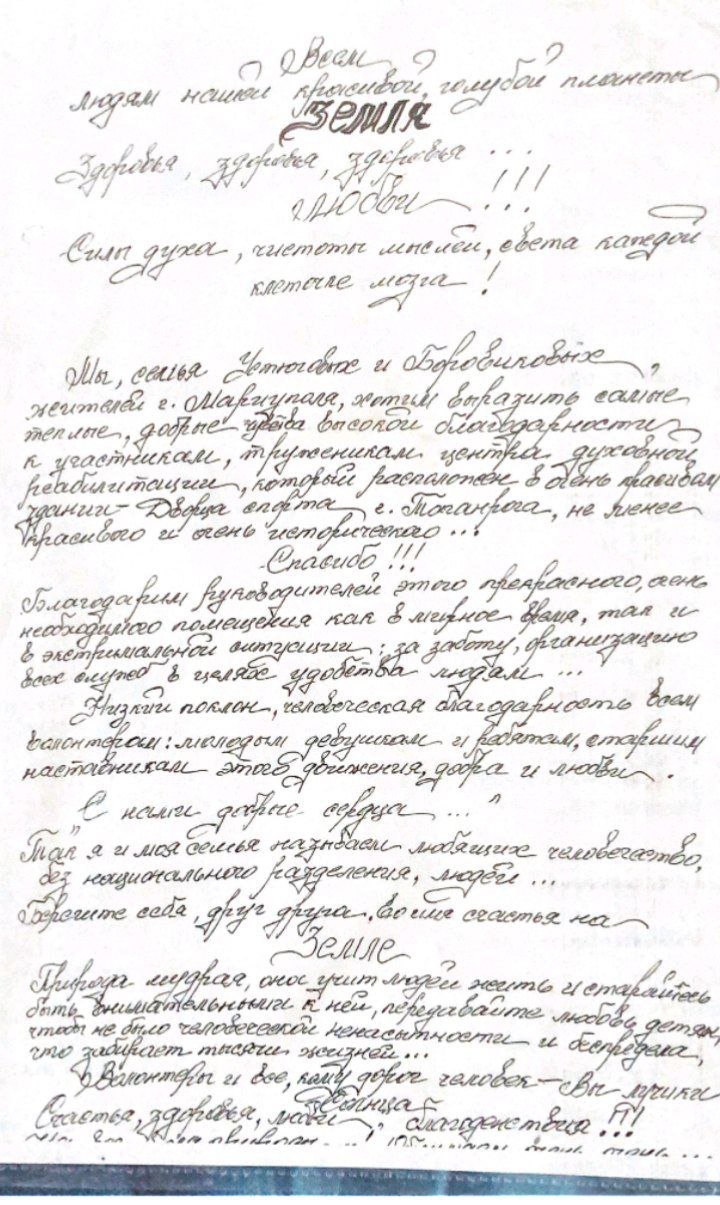 Всем
людям нашей красивой, голубой планеты
Земля
Здоровья, здоровья, здоровья ...
Любви !!!
Силы духа, чистоты мыслей, света каждой
клеточке мозга !
Мы, семья Устюговых и Боровиковых,
жителей г. Мариуполя, хотим выразить самые
теплые, добрые чувства высокой благодарности
к участникам, труженикам центра духовной
реабилитации, который расположен в очень красивом
здании - Дворца спорта г. Таганрога, не менее
красивого и очень исторического ...
Спасибо !!!
Благодарим руководителей этого прекрасного, очень
необходимого помещения как в мирное время, так и
в экстримальной ситуации; за заботу, организацию
всех служб в целях удобства людям ...
Низкий поклон, человеческая благодарность всем
волонтерам: молодым девушкам и ребятам, старшим
наставникам этого движения, добра и любви.
"С нами добрые сердца ..."
Так я и моя семья называем любящих человечество,
без национального разделения, людей ...
Берегите себя, друг друга, во имя счастья на
Земле
Природа мудрая, она учит людей жить и старайтесь
быть внимательными к ней, передавайте любовь детям,
чтобы не было человеческой ненасытности и беспредела,
что забирает тысячи жизней ...
Волонтеры и все, кому дорог человек - Вы лучики
Солнца
Счастья, здоровья, любви, благоденствия !!!